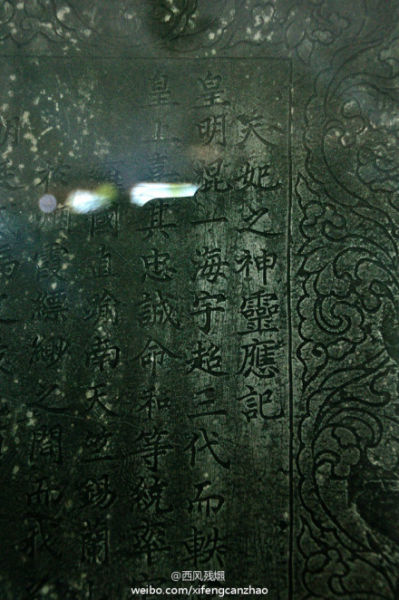 天妃之神靈應記
皇明混一海宇超三代而軼
皇上嘉其忠誠命和等統率
國直踰南天竺錫蘭
霞縹緲之間而我
@西风残烟
weibo.com/xifengcanzhao